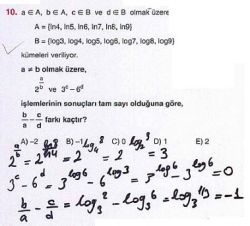 10. a ∈ A, b ∈ A, c ∈ B ve d ∈ B olmak üzere,
A = {ln4, ln5, ln6, ln7, ln8, ln9}
B = {log3, log4, log5, log6, log7, log8, log9}
kümeleri veriliyor.
a ≠ b olmak üzere,
2^(a/b) ve 3^c – 6^d
işlemlerinin sonuçları tam sayı olduğuna göre,
b/a – c/d farkı kaçtır?
A) –2 B) –1 C) 0 D) 1 E) 2
2^(a/b) = 2^(ln8/ln4) = 2^(log_4 8) = 2^(log_2 3) = 3
3^c – 6^d = 3^(log6) – 6^(log3) = 3^(log6) – 3^(log6) = 0
b/a – c/d = log_3 2 – log_3 6 = log_3 1/3 = –1